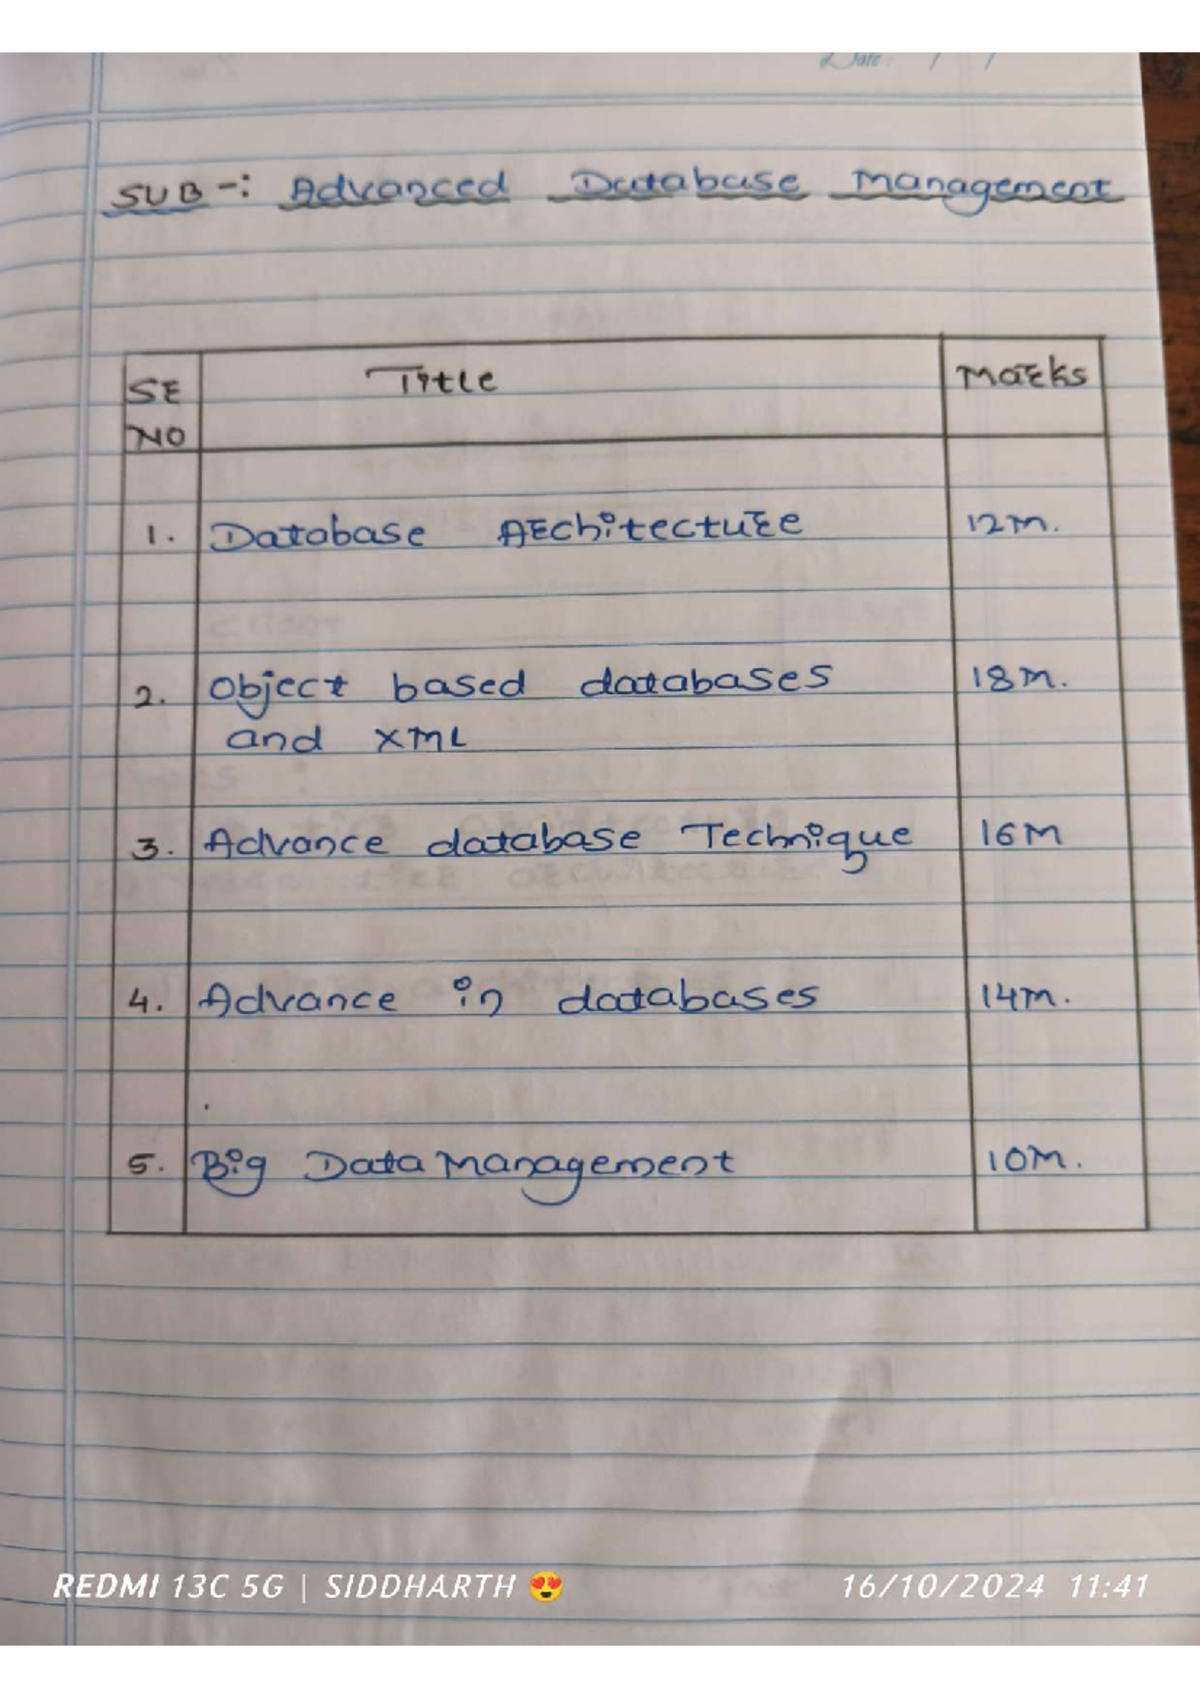 Date: / /
SUB-: Advanced Database Management
SR NO Title Marks
1. Database Architecture 12M.
2. Object based databases 18M.
and XML
3. Advance database Technique 16M
4. Advance in databases 14M.
5. Big Data Management 10M.
REDMI 13C 5G | SIDDHARTH 😍 16/10/2024 11:41